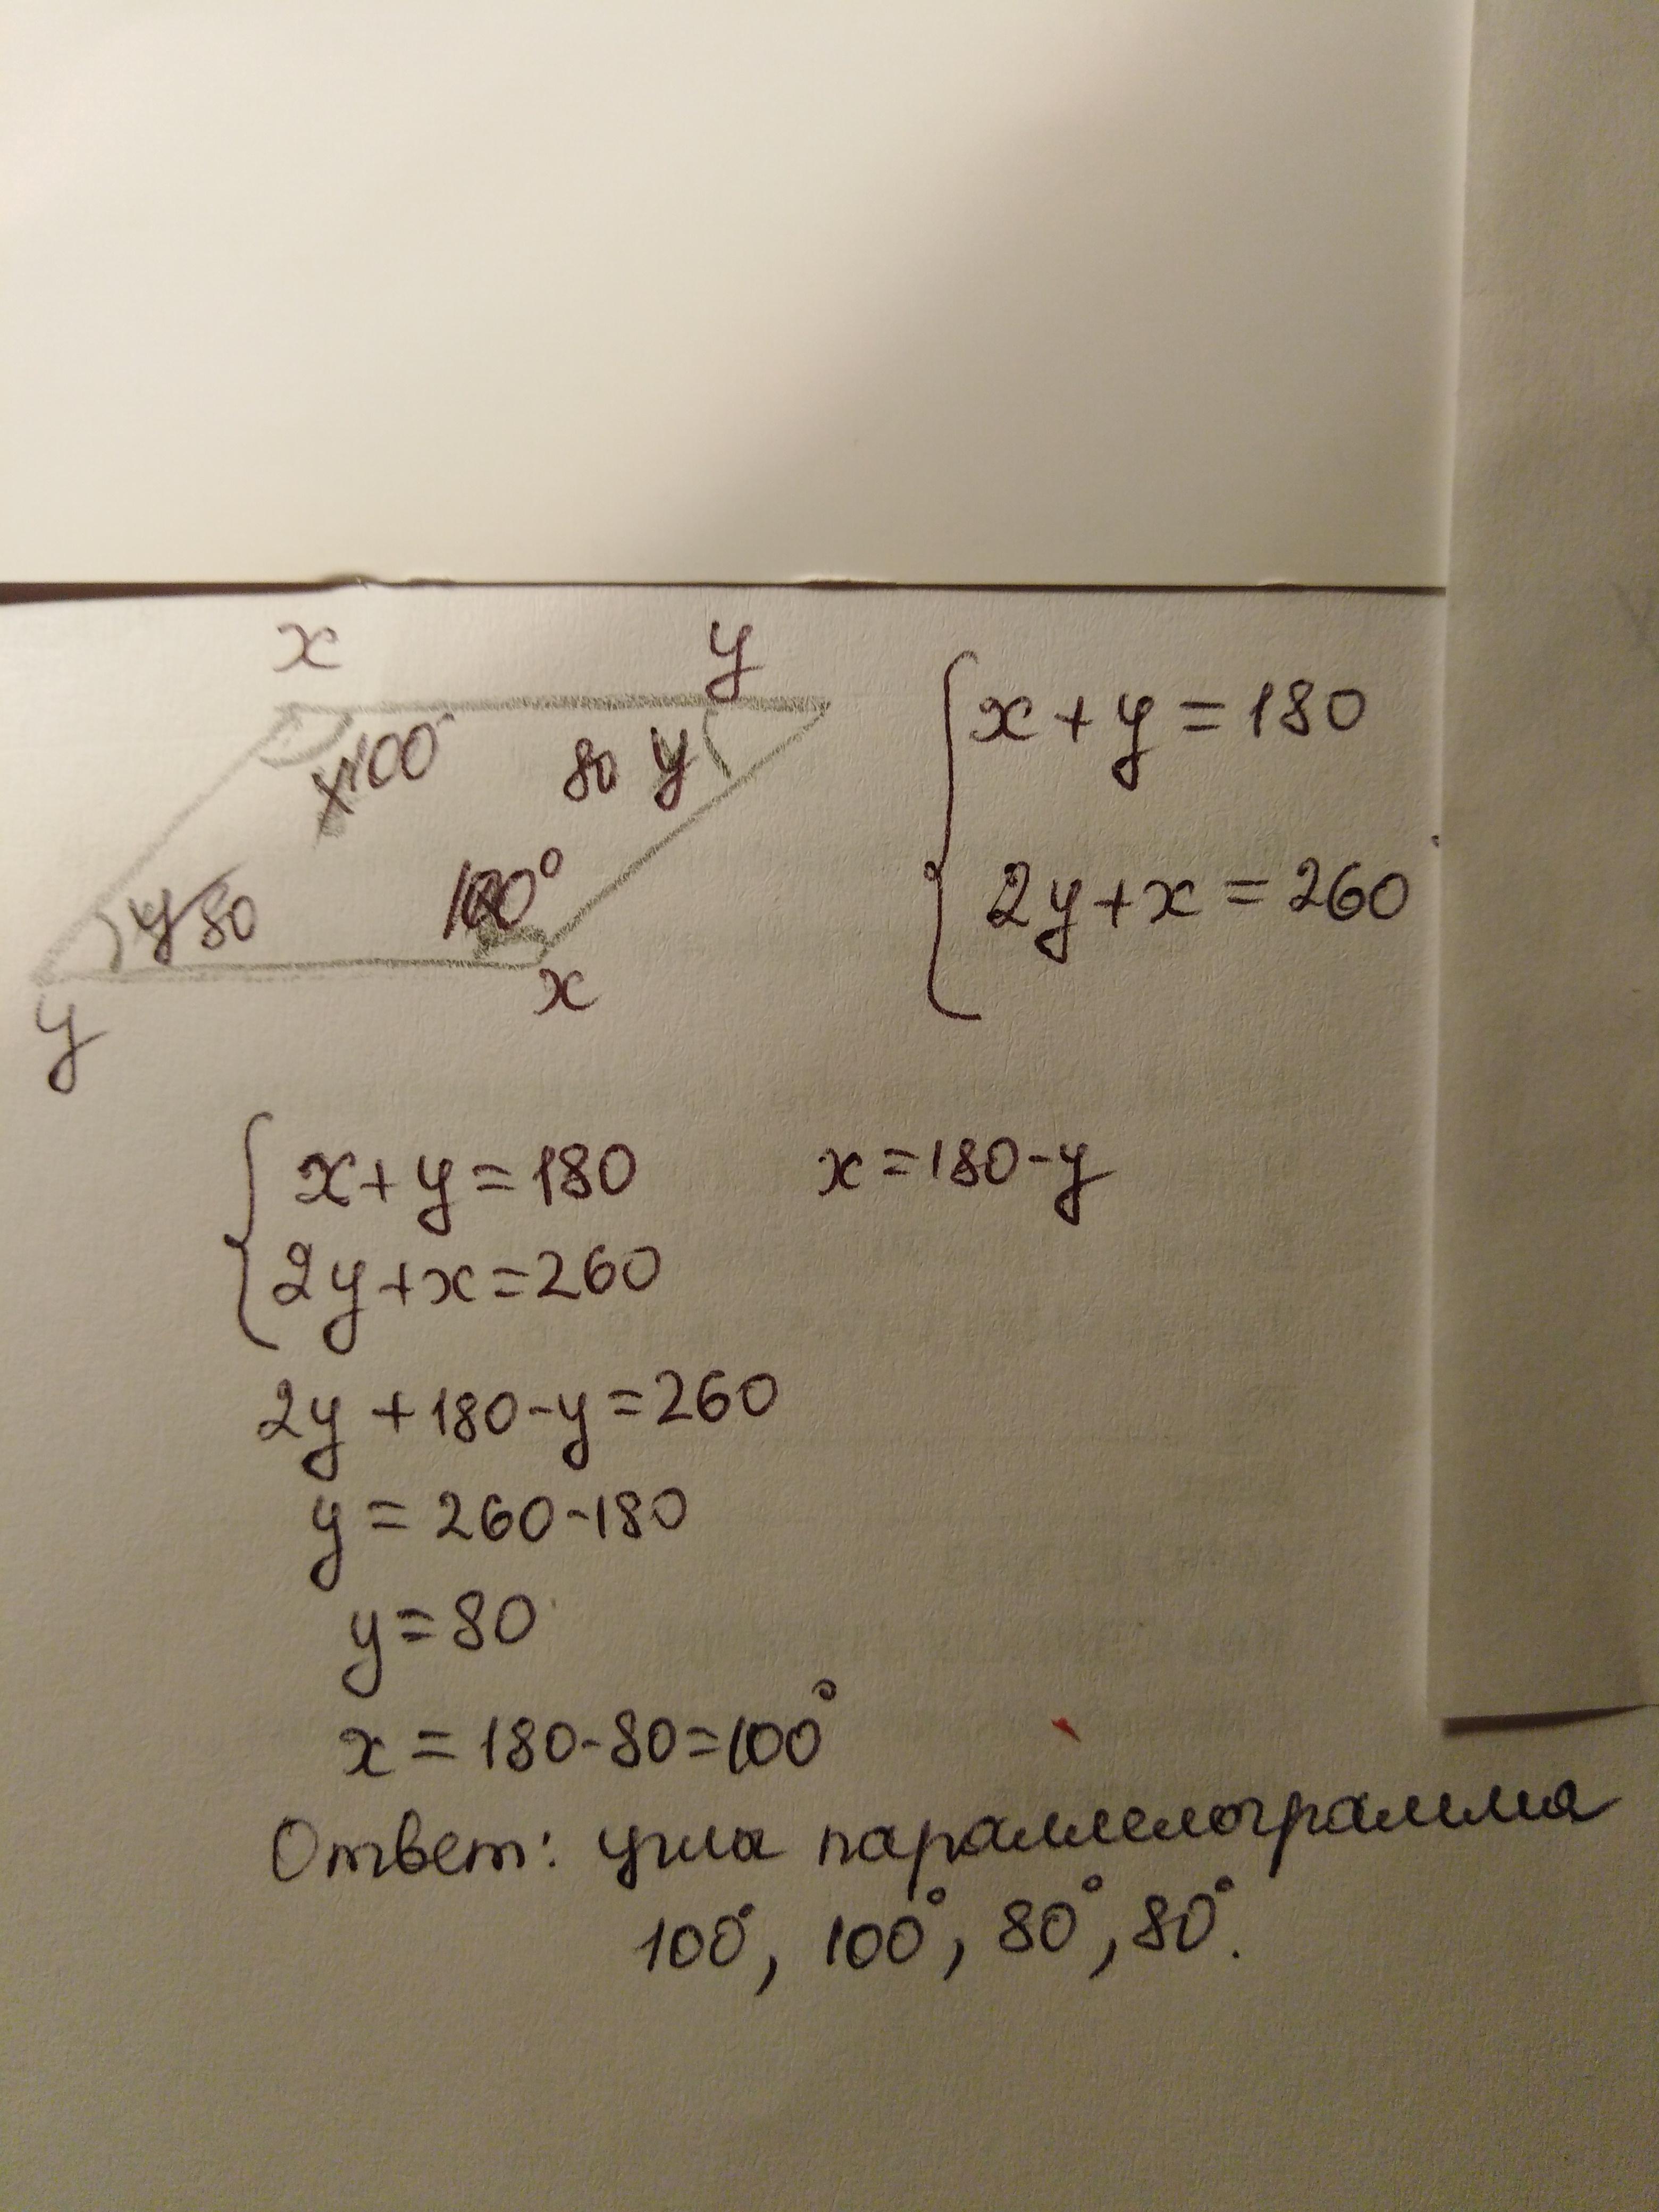 x y
x100° 80 y
y80 100°
y x
x+y=180
2y+x=260
x+y=180 x=180-y
2y+x=260
2y+180-y=260
y=260-180
y=80
x=180-80=100°
Ответ: угла параллелограмма
100°, 100°, 80°, 80°.